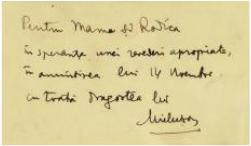 Pentru Mama și Rodica
în speranța unei revederi apropiate,
în amintirea lui 14 Noembr.
cu toată dragostea lui